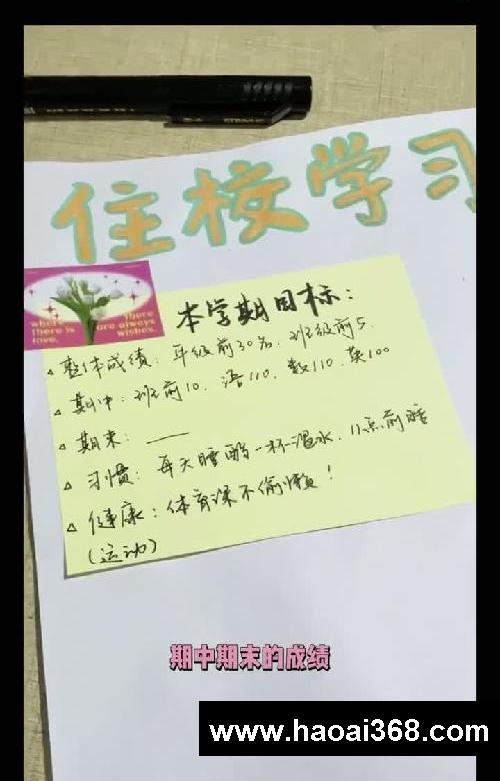 住校学习
where
there is
love,
there
are always
wishes.
本学期目标:
整体成绩: 年级前30名, 班级前5.
期中: 班前10, 语110, 数110, 英100
期末: ——
习惯: 每天睡醒一杯温水, 11点前睡
健康: 体育课不偷懒!
(运动)
期中期末的成绩
www.haoai368.com